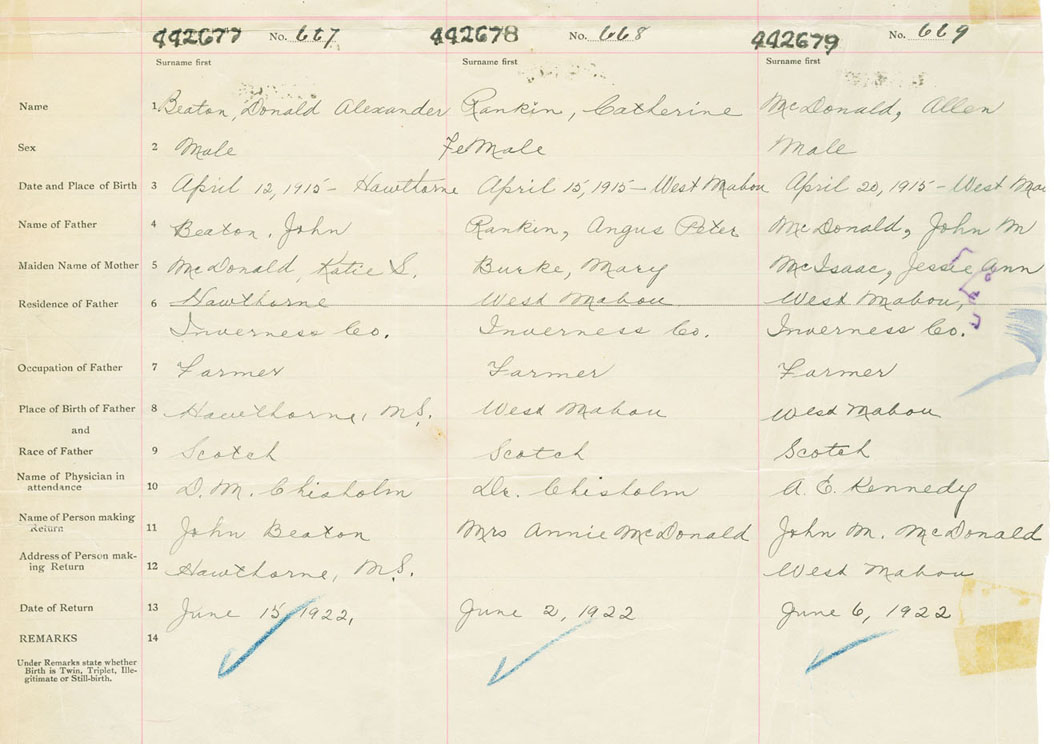 442677 No. 667 442678 No. 668 442679 No. 669
Surname first Surname first Surname first
Name 1 Beaton, Donald Alexander Rankin, Catherine McDonald, Allen
Sex 2 Male FeMale Male
Date and Place of Birth 3 April 12, 1915 - Hawthorne April 15, 1915 - West Mabou April 20, 1915 - West
Name of Father 4 Beaton, John Rankin, Angus Peter McDonald, John M
Maiden Name of Mother 5 McDonald, Katie S. Burke, Mary McIsaac, Jessie Ann
Residence of Father 6 Hawthorne West Mabou West Mabou,
Inverness Co. Inverness Co. Inverness Co.
Occupation of Father 7 Farmer Farmer Farmer
Place of Birth of Father 8 Hawthorne, N.S. West Mabou West Mabou
and
Race of Father 9 Scotch Scotch Scotch
Name of Physician in
attendance 10 D. M. Chisholm Dr. Chisholm A. E. Kennedy
Name of Person making
Return 11 John Beaton Mrs Annie McDonald John M. McDonald
Address of Person mak-
ing Return 12 Hawthorne, N.S. West Mabou
Date of Return 13 June 15, 1922, June 2, 1922 June 6, 1922
REMARKS 14
Under Remarks state whether
Birth is Twin, Triplet, Ille-
gitimate or Still-birth.